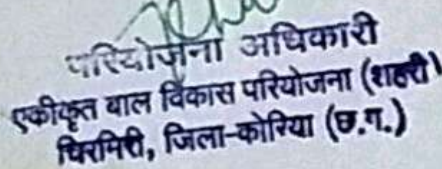 परियोजना अधिकारी
एकीकृत बाल विकास परियोजना (शहरी)
चिरमिरी, जिला-कोरिया (छ.ग.)